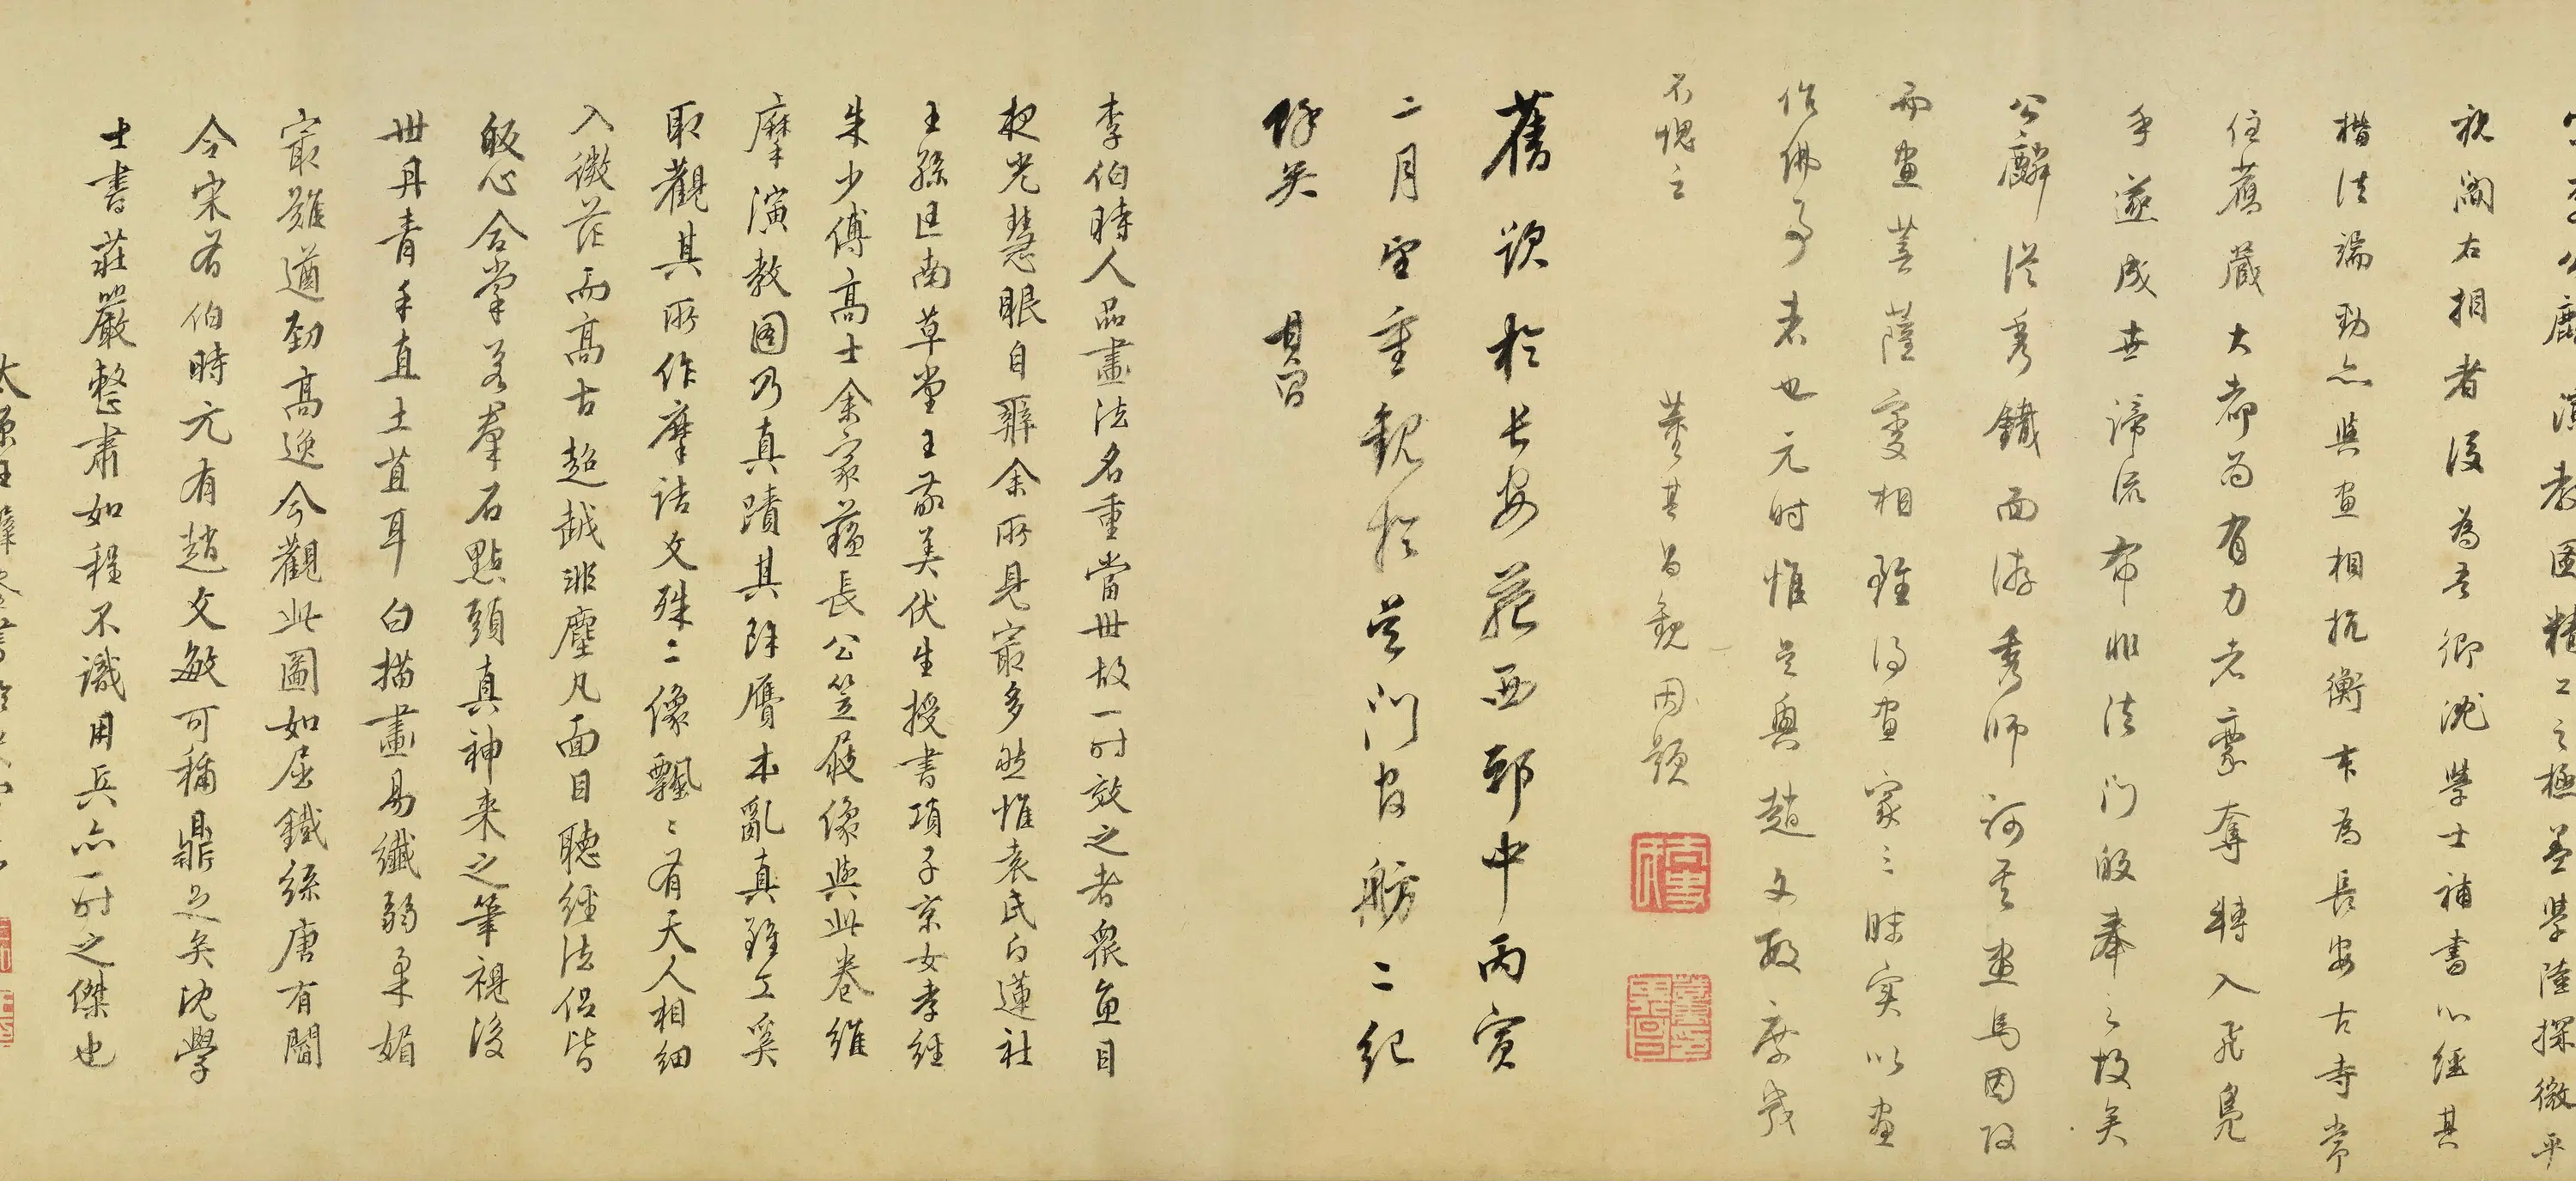 宋李公麟演教图精工之極盖學陸探微平
視閻右相者後為吾鄉沈學士補書心經其
楷法端勁亦與画相抗衡本為長安古寺常
住舊藏大都為有力者豪奪轉入飛鳧
手遂成世諦流布非法門皈奉之故矣
公麟從秀鐵面游秀師訶其画馬因改
而画菩薩變相雖得画家三昧实以画
作佛事者也元时惟吴興趙文敏庶幾
不愧之 董其昌觀因題
舊跋於长安苑西邸中丙寅
二月望重觀於吴门官舫二紀
餘矣 其昌
李伯時人品畫法名重當世故一时效之者衆魚目
夜光慧眼自辨余所見最多然惟袁氏白蓮社
王孫芷南草堂王敬美伏生授書項子京女孝經
朱少傅高士余家蘓長公笠屐像與此卷維
摩演教圖乃真蹟其餘贋本亂真雖工奚
取觀其所作摩詰文殊二像飄飄有天人相細
入微茫而高古超越非塵凡面目聽經法侣皆
皈心合掌若羣石點頭真神来之筆視後
世丹青手直土苴耳白描畫易纖弱柔媚
最難遒勁高逸今觀此圖如屈鐵絲唐有閻
令宋有伯時元有趙文敏可稱鼎足矣沈學
士書莊嚴整肅如程不識用兵亦一时之傑也